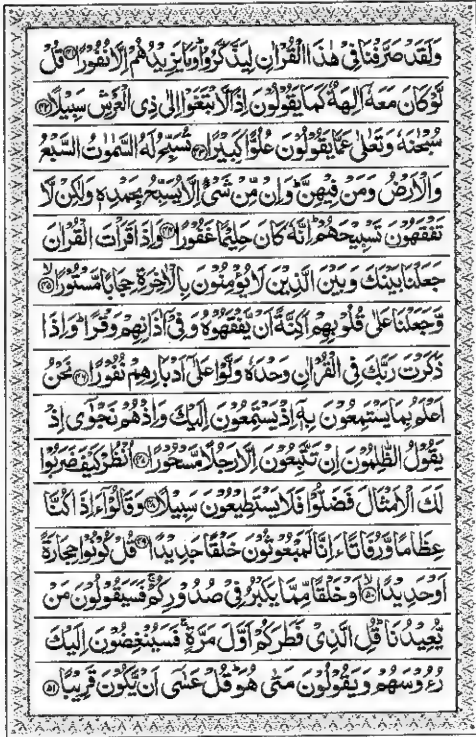 وَلَقَدْ صَرَّفْنَا فِیْ هٰذَا الْقُرْاٰنِ لِیَذَّكَّرُوْاؕ وَمَا یَزِیْدُهُمْ اِلَّا نُفُوْرًا۝۴۱ قُلْ
لَّوْ كَانَ مَعَهٗۤ اٰلِهَةٌ كَمَا یَقُوْلُوْنَ اِذًا لَّابْتَغَوْا اِلٰى ذِی الْعَرْشِ سَبِیْلًا۝۴۲
سُبْحٰنَهٗ وَتَعٰلٰى عَمَّا یَقُوْلُوْنَ عُلُوًّا كَبِیْرًا۝۴۳ تُسَبِّحُ لَهُ السَّمٰوٰتُ السَّبْعُ
وَالْاَرْضُ وَمَنْ فِیْهِنَّؕ وَاِنْ مِّنْ شَیْءٍ اِلَّا یُسَبِّحُ بِحَمْدِهٖ وَلٰكِنْ لَّا
تَفْقَهُوْنَ تَسْبِیْحَهُمْؕ اِنَّهٗ كَانَ حَلِیْمًا غَفُوْرًا۝۴۴ وَاِذَا قَرَاْتَ الْقُرْاٰنَ
جَعَلْنَا بَیْنَكَ وَبَیْنَ الَّذِیْنَ لَا یُؤْمِنُوْنَ بِالْاٰخِرَةِ حِجَابًا مَّسْتُوْرًا۝۴۵ۙ
وَّجَعَلْنَا عَلٰى قُلُوْبِهِمْ اَكِنَّةً اَنْ یَّفْقَهُوْهُ وَفِیْۤ اٰذَانِهِمْ وَقْرًاؕ وَاِذَا
ذَكَرْتَ رَبَّكَ فِی الْقُرْاٰنِ وَحْدَهٗ وَلَّوْا عَلٰۤى اَدْبَارِهِمْ نُفُوْرًا۝۴۶ نَحْنُ
اَعْلَمُ بِمَا یَسْتَمِعُوْنَ بِهٖۤ اِذْ یَسْتَمِعُوْنَ اِلَیْكَ وَاِذْ هُمْ نَجْوٰۤى اِذْ
یَقُوْلُ الظّٰلِمُوْنَ اِنْ تَتَّبِعُوْنَ اِلَّا رَجُلًا مَّسْحُوْرًا۝۴۷ اُنْظُرْ كَیْفَ ضَرَبُوْا
لَكَ الْاَمْثَالَ فَضَلُّوْا فَلَا یَسْتَطِیْعُوْنَ سَبِیْلًا۝۴۸ وَقَالُوْۤا ءَاِذَا كُنَّا
عِظَامًا وَّرُفَاتًا ءَاِنَّا لَمَبْعُوْثُوْنَ خَلْقًا جَدِیْدًا۝۴۹ قُلْ كُوْنُوْا حِجَارَةً
اَوْ حَدِیْدًا۝۵۰ۙ اَوْ خَلْقًا مِّمَّا یَكْبُرُ فِیْ صُدُوْرِكُمْۚ فَسَیَقُوْلُوْنَ مَنْ
یُّعِیْدُنَاؕ قُلِ الَّذِیْ فَطَرَكُمْ اَوَّلَ مَرَّةٍۚ فَسَیُنْغِضُوْنَ اِلَیْكَ
رُءُوْسَهُمْ وَیَقُوْلُوْنَ مَتٰى هُوَؕ قُلْ عَسٰۤى اَنْ یَّكُوْنَ قَرِیْبًا۝۵۱